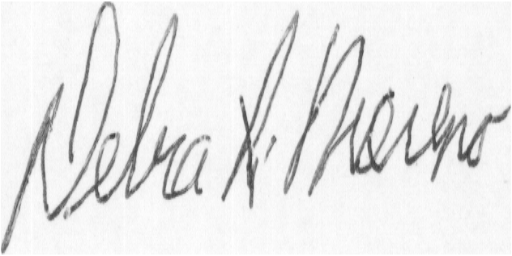 Debra L. Moreno